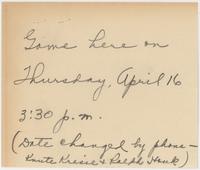 Game here on
Thursday, April 16
3:30 p.m.
(Date changed by phone—
Knute Kresse & Ralph Hauk)